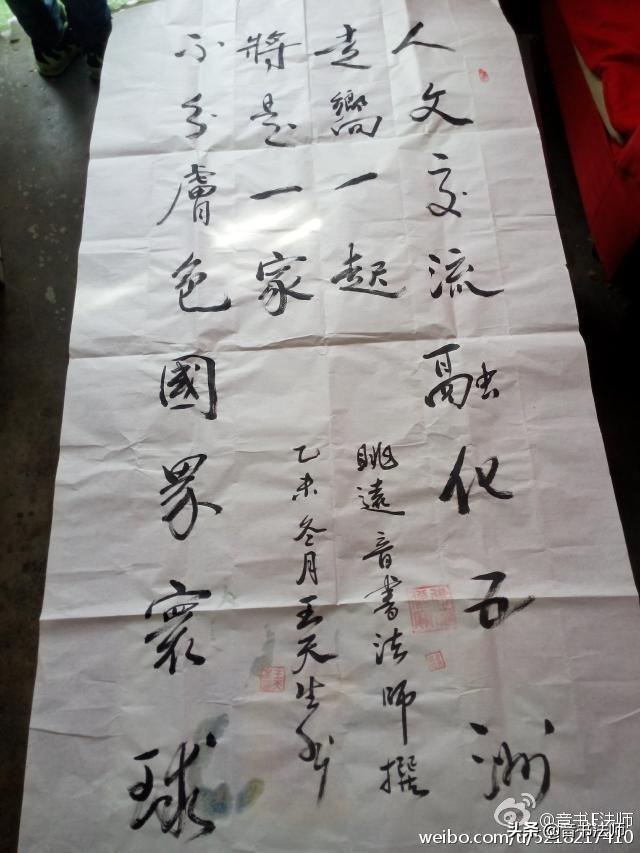 人文交流融化五洲
走嚮一起
眺遠音書法師撰
將是一家
乙未冬月王天生书
不分膚色國界寰球
@音书E法师
头条@音书法师
weibo.com/u/5218217410